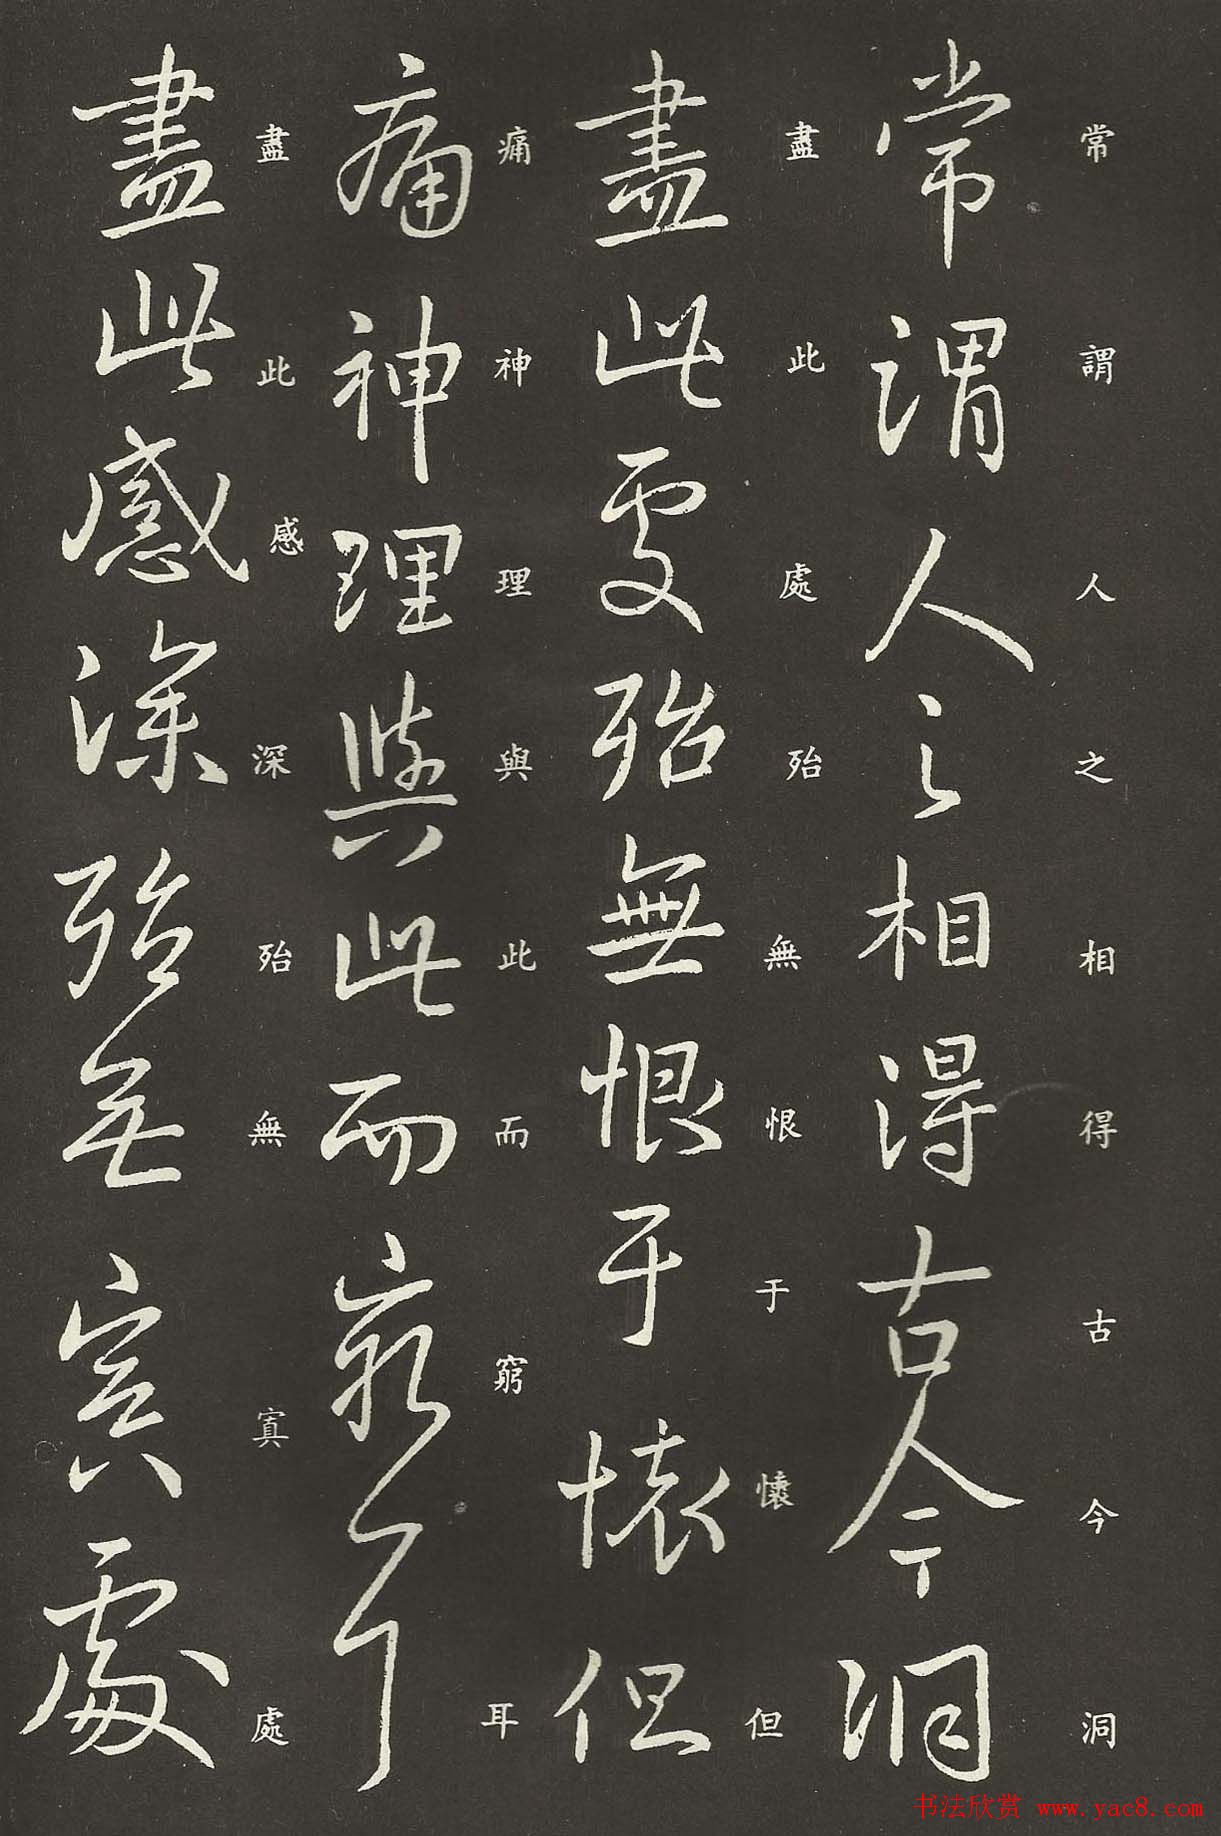 常謂人之相得古今洞
常謂人之相得古今洞
盡此處殆無恨于懷但
盡此處殆無恨于懷但
痛神理與此而窮耳
痛神理與此而窮耳
盡此感深殆無寘處
盡此感深殆無寘處
书法欣赏 www.yac8.com